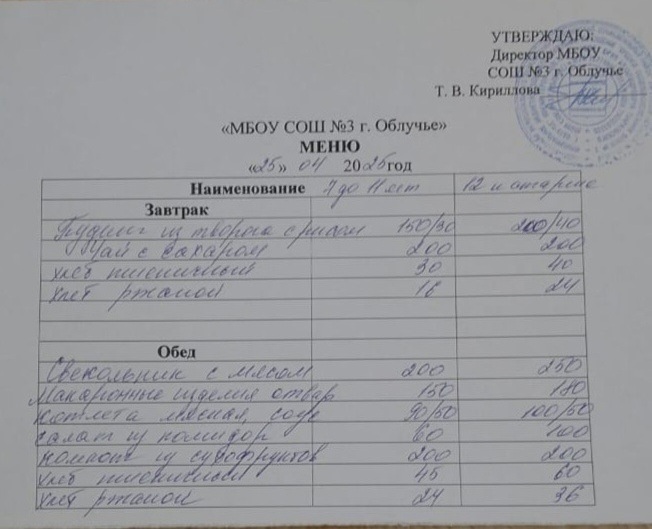 УТВЕРЖДАЮ:
Директор МБОУ
СОШ №3 г. Облучье
Т. В. Кириллова
«МБОУ СОШ №3 г. Облучье»
МЕНЮ
«25» 04 2025 год
Наименование 7 до 11 лет 12 и старше
Завтрак
Пудинг из творога с рисом 150/30 200/40
Чай с сахаром 200 200
Хлеб пшеничный 30 40
Хлеб ржаной 16 24
Обед
Свекольник с мясом 200 250
Макаронные изделия отвар 150 180
Котлета мясная, соус 90/50 100/50
салат из помидор 60 100
компот из сухофруктов 200 200
Хлеб пшеничный 45 60
Хлеб ржаной 24 36